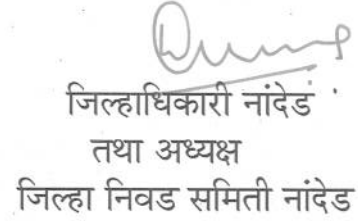 जिल्हाधिकारी नांदेड
तथा अध्यक्ष
जिल्हा निवड समिती नांदेड